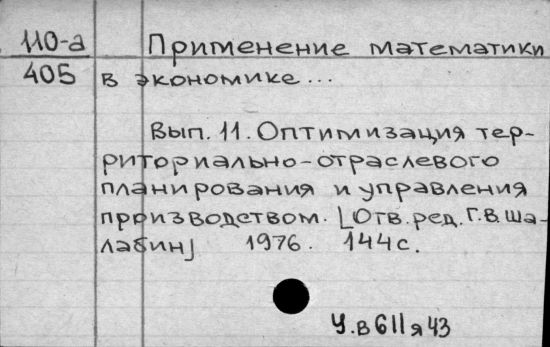 110-а Применение математики
405 в экономике...
Вып. 11. Оптимизация тер-
риториально-отраслевого
планирования и управления
производством. [Отв. ред. Г.В. Ша-
лабин] 1976. 144 с.
У.в611я43